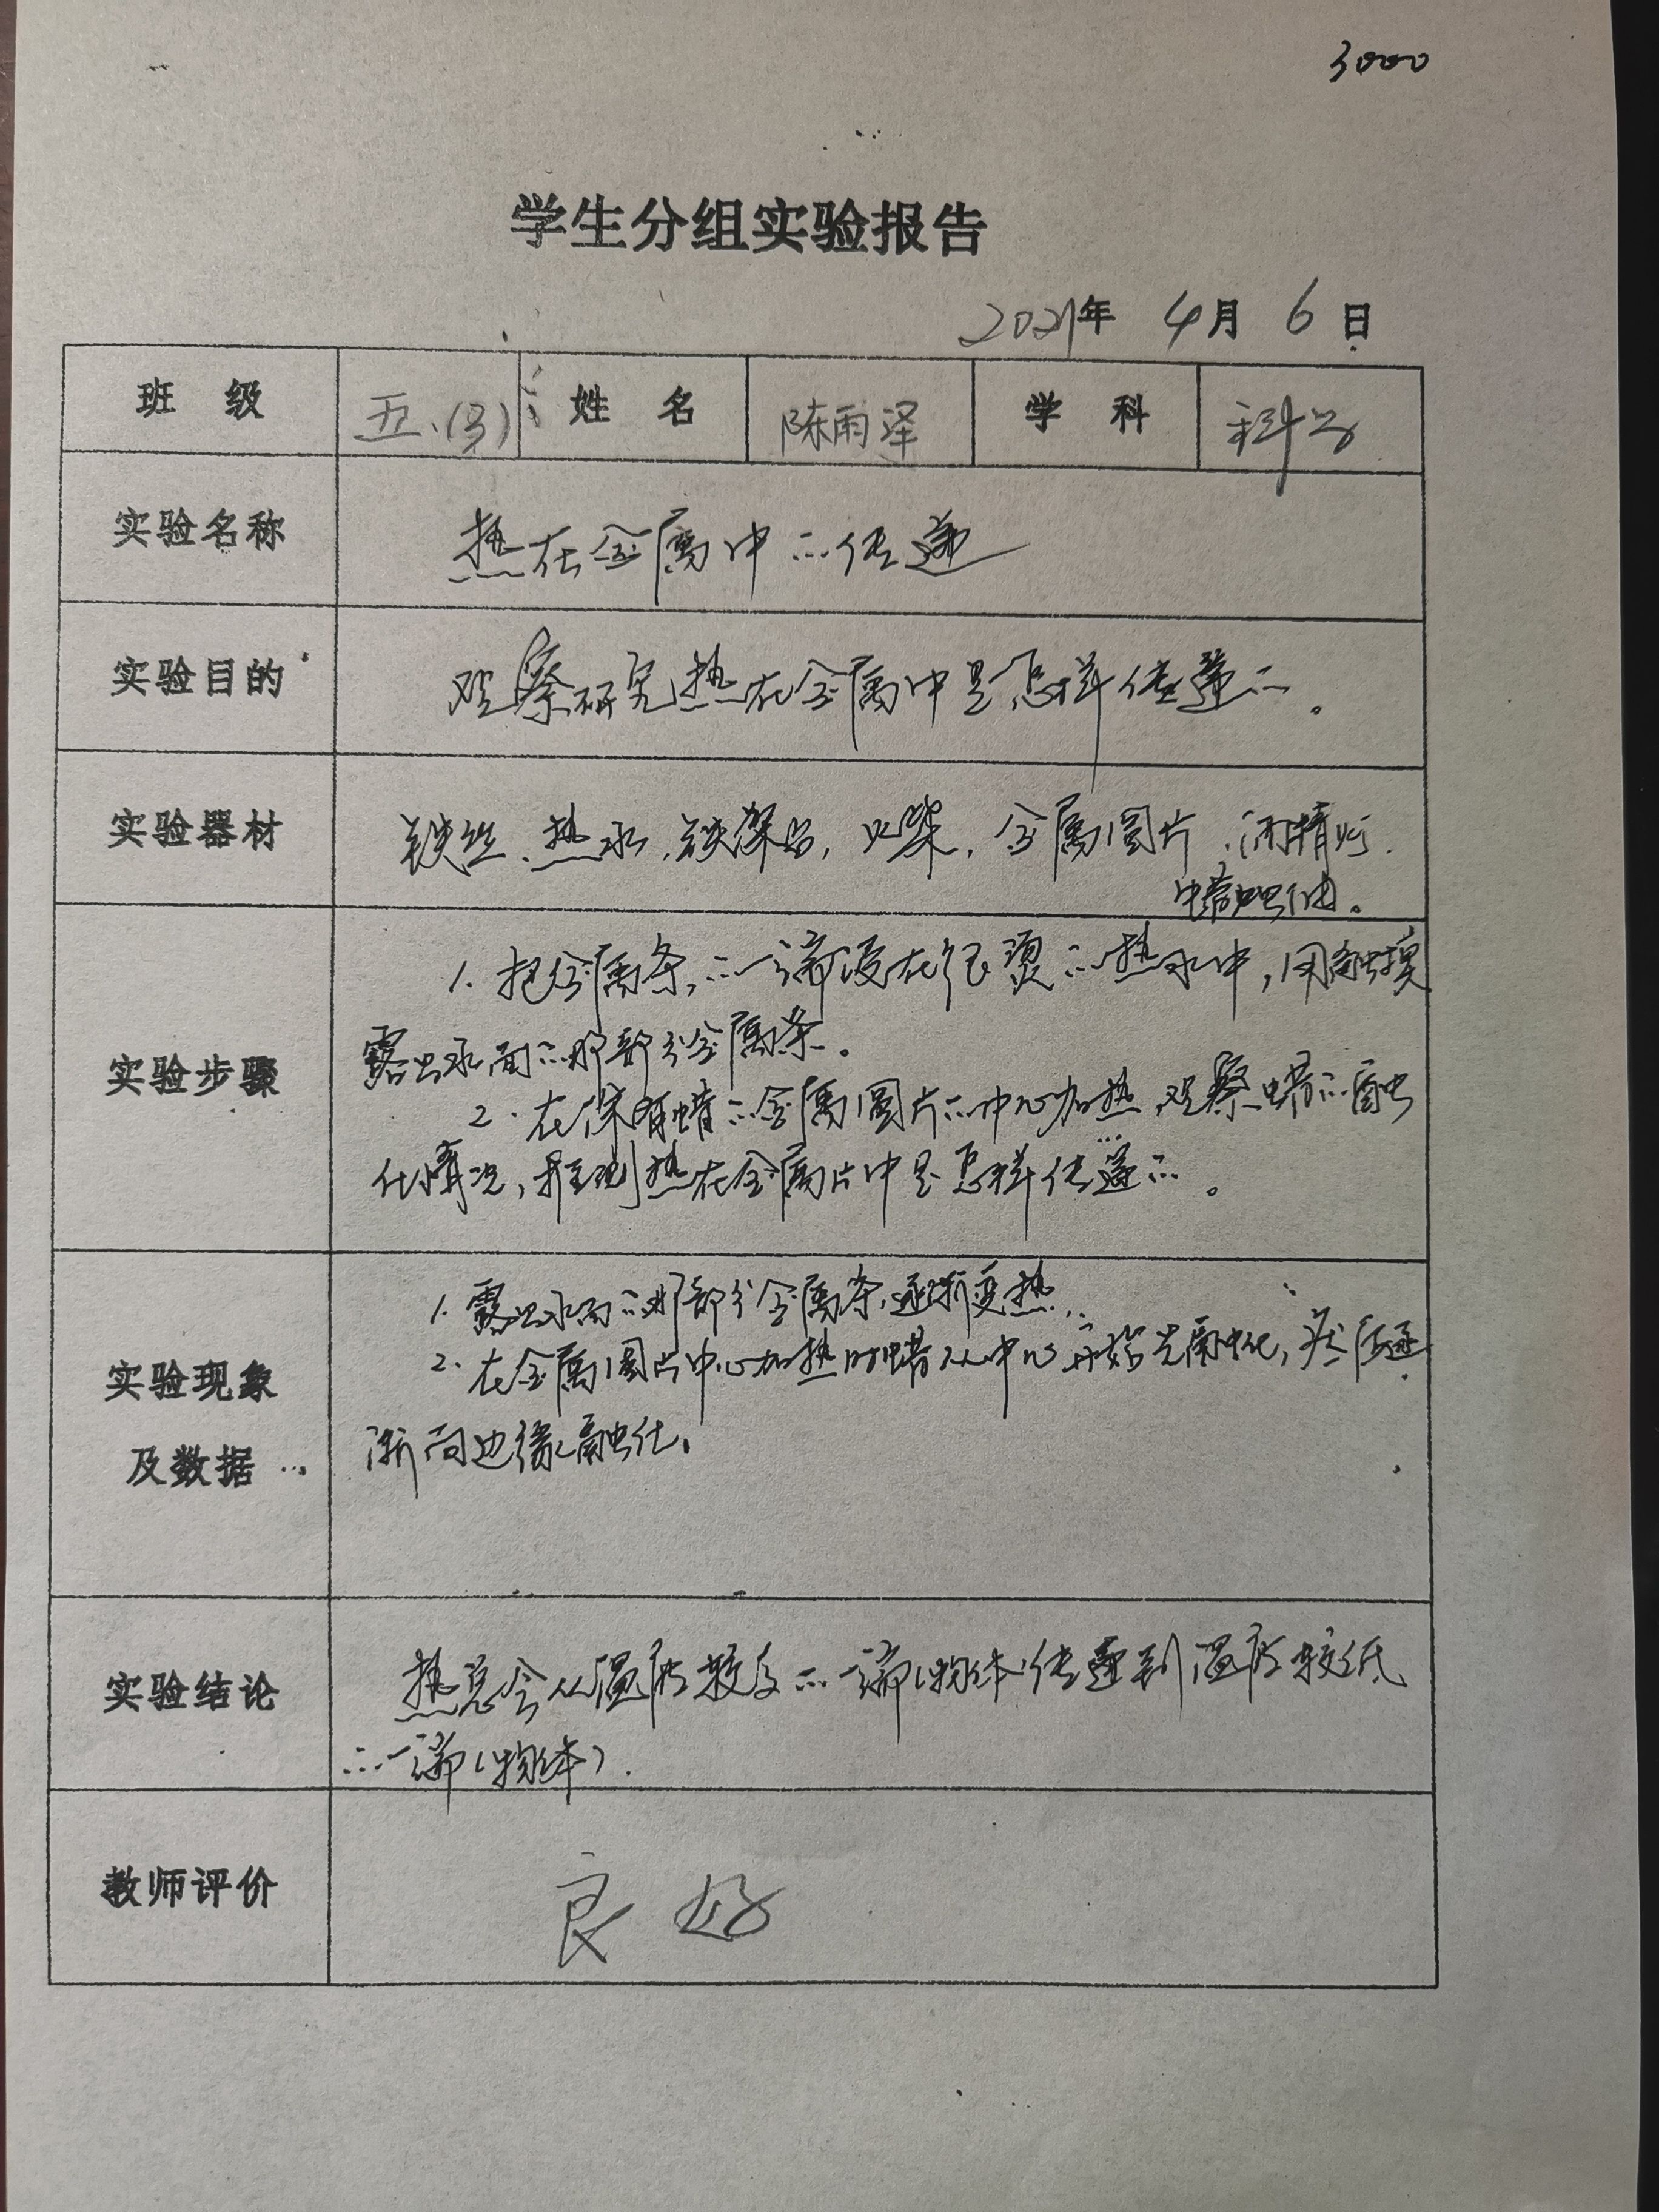 3000
学生分组实验报告
2021年 4月 6日
班 级 五.(3) 姓 名 陈雨泽 学 科 科学
实验名称 热在金属中的传递
实验目的 观察研究热在金属中是怎样传递的。
实验器材 铁丝、热水、铁架台，火柴，金属圆片、酒精灯、
实验步骤 1. 把金属条的一端浸在很烫的热水中，用触摸
露出水面的那部分金属条。
2. 在涂有蜡的金属圆片的中心加热，观察蜡的融
化情况，推测热在金属片中是怎样传递的。
实验现象
及数据
1. 露出水面的那部分金属条，逐渐变热
2. 在金属圆片中心加热时蜡从中心开始先融化，然后逐
渐向边缘融化。
实验结论 热总会从温度较高的一端（物体）传递到温度较低
的一端（物体）.
教师评价 良好